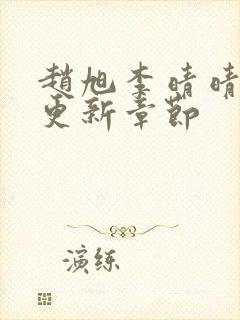 趙旭李晴晴
更新章節
演练